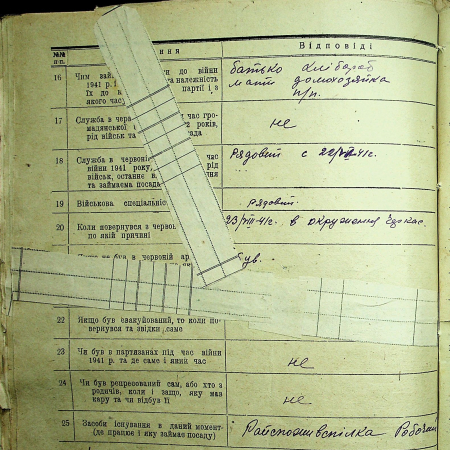 №№
п-п.
ння
Відповіді
16
Чим зай
ки до війни
1941 р.
та належність
їх до к
партії з
якого час
батько хлібороб
мати домохозяйка
п/п.
17
Служба в чер
час гро-
мадянської
років,
рід військ та
не
18
Служба в червоні
час
війни 1941 року,
рід
військ, останнє в
ння
та займаєма поса
Рядовий с
19
Військова спеціальніс
рядовий
20
Коли повернувся з червон
по якій причині
в окружения
був в червоній ар
був.
22
Якщо був евакуйований, то коли по-
вернувся та звідки саме
23
Чи був в партизанах під час війни
1941 р. та де саме і який час
не
24
Чи був репресований сам, або хто з
родичів, коли і защо, яку мав
кару та чи відбув її
не
25
Засоби існування в даний момент-
(де працює і яку займає посаду)
Райспоживспілка Робочий